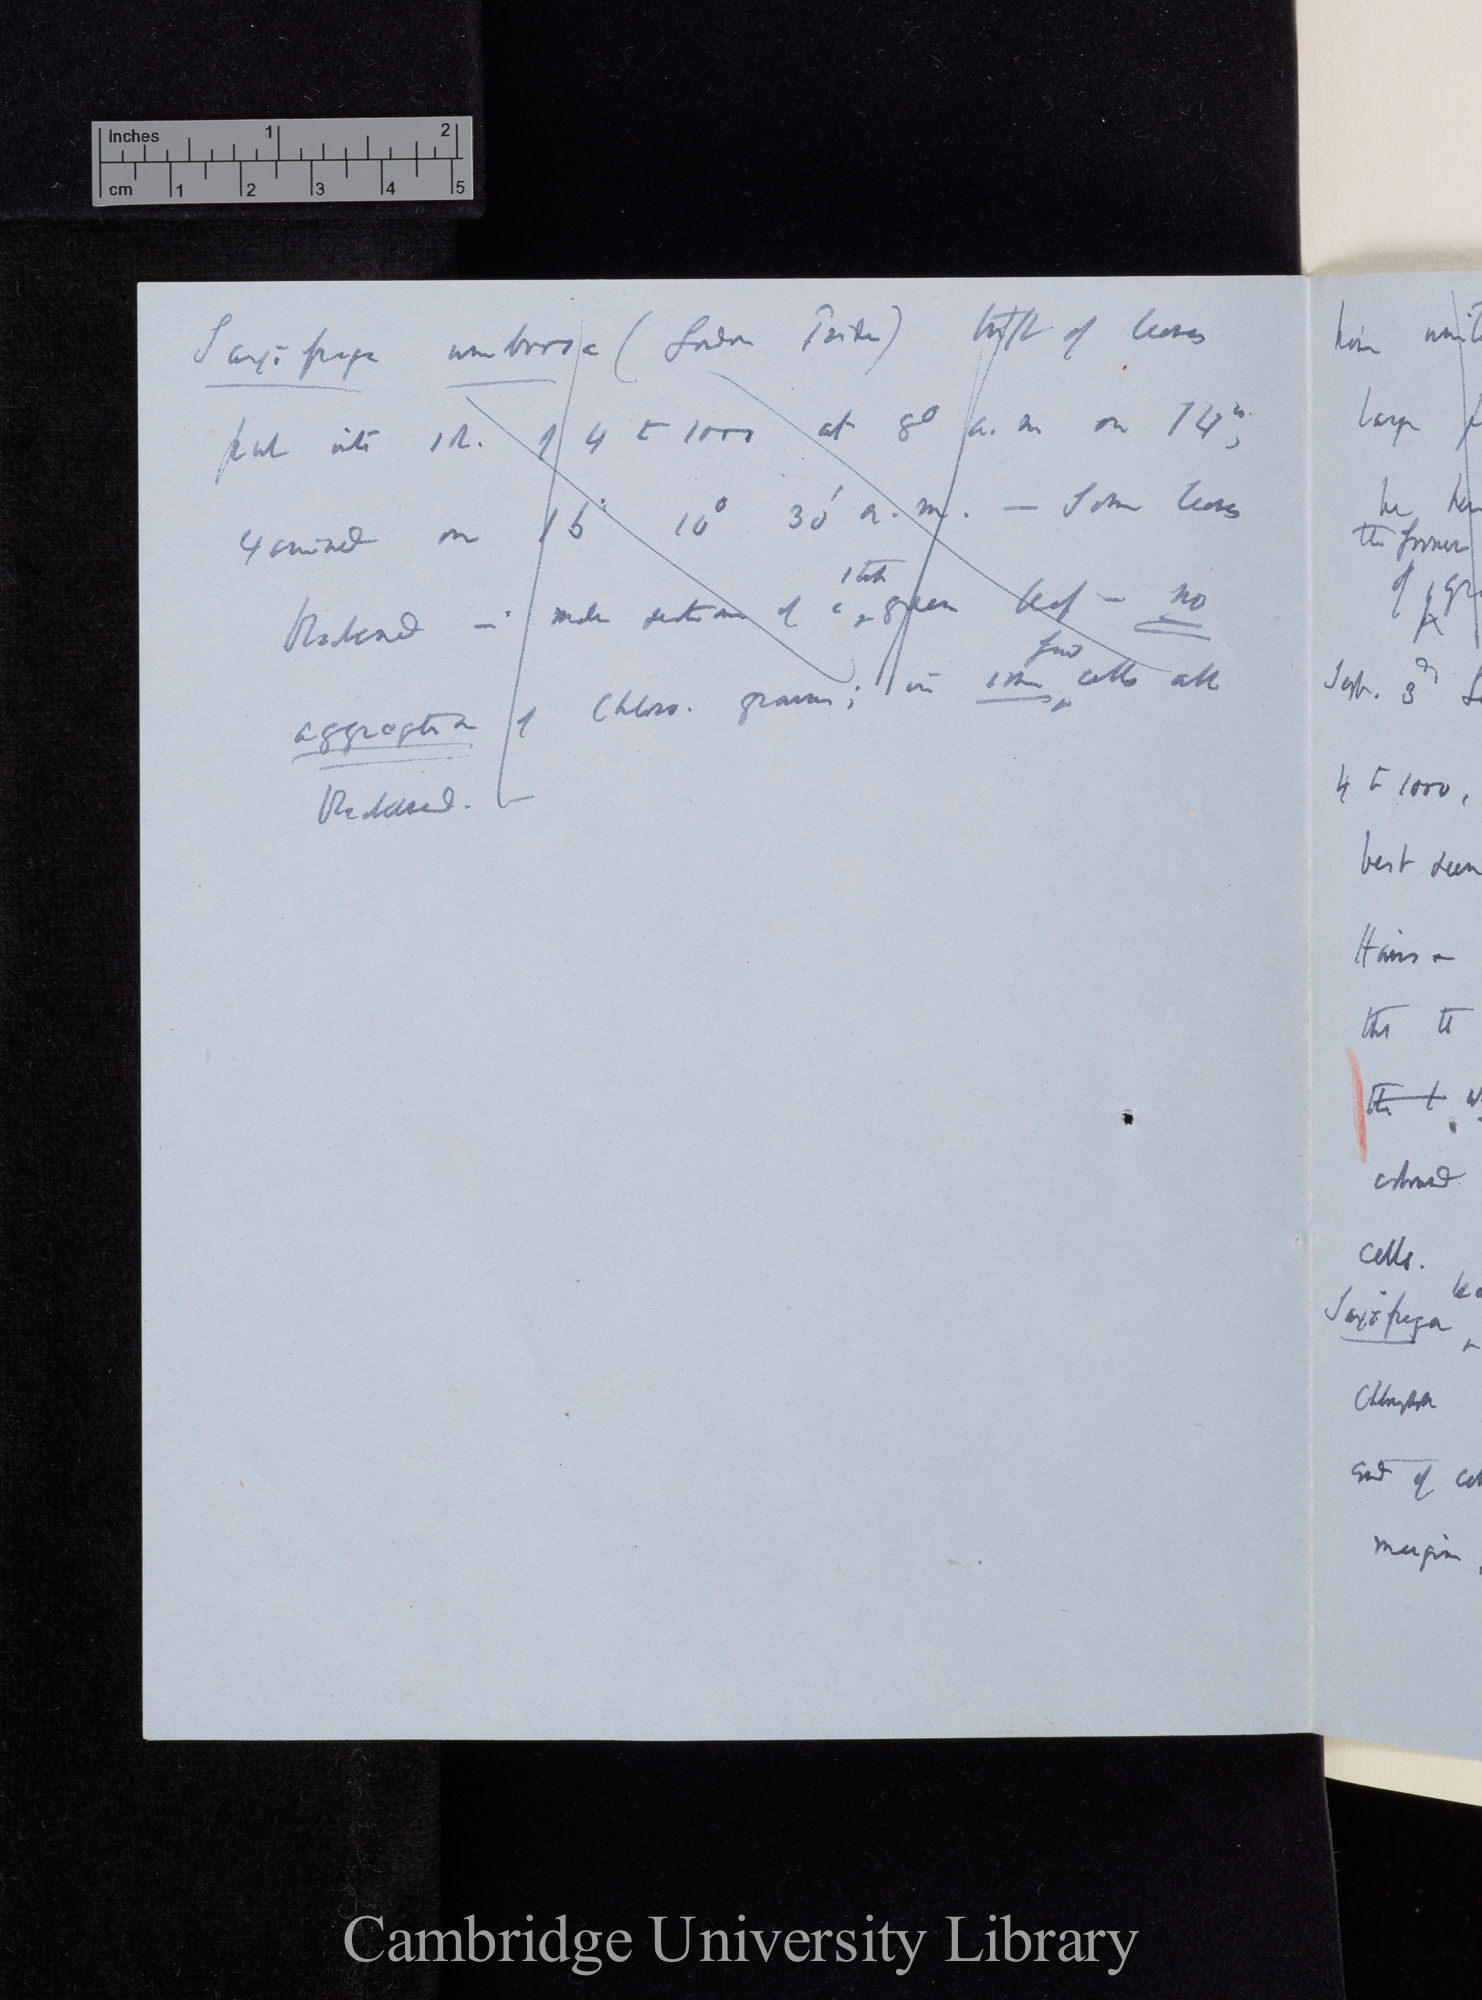 Inches 1 2
cm 1 2 3 4 5
Saxifraga umbrosa (London Pride) tuft of leaves
put into sol. of 4 to 1000 at 8° a.m on 14th,
examined on 16 10° 30' a.m. — Some leaves
blackened — made sections of a still green leaf — no
aggregation of Chloro. grains; in some few cells all
blackened. —
large
the former
of
Sept. 3d
4 to 1000,
best seen
Hairs
this
the
coloured
cells.
Saxifraga
end of
margin
Cambridge University Library